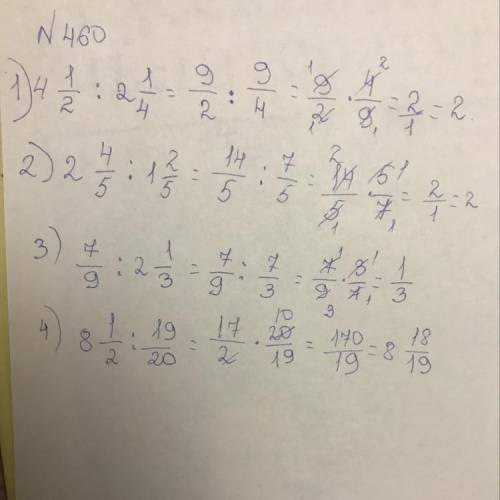 № 460
1) 4 1/2 : 2 1/4 = 9/2 : 9/4 = 9/2 · 4/9 = 2/1 = 2.
2) 2 4/5 : 1 2/5 = 14/5 : 7/5 = 14/5 · 5/7 = 2/1 = 2
3) 7/9 : 2 1/3 = 7/9 : 7/3 = 7/9 · 3/7 = 1/3
4) 8 1/2 : 19/20 = 17/2 · 20/19 = 170/19 = 8 18/19